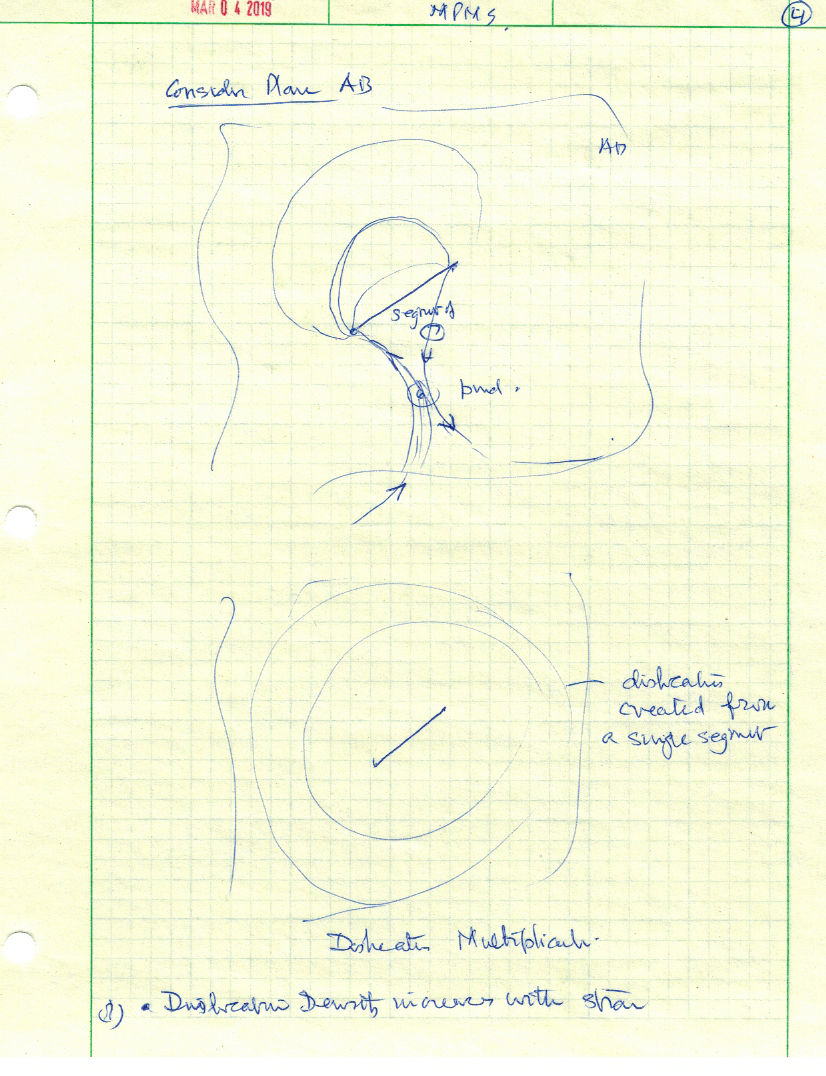 MAR 04 2019
MPMS
4
Consider Plane AB
AB
segment
dislocations
created from
a single segment
Dislocation Multiplication
2) • Dislocation Density increases with strain